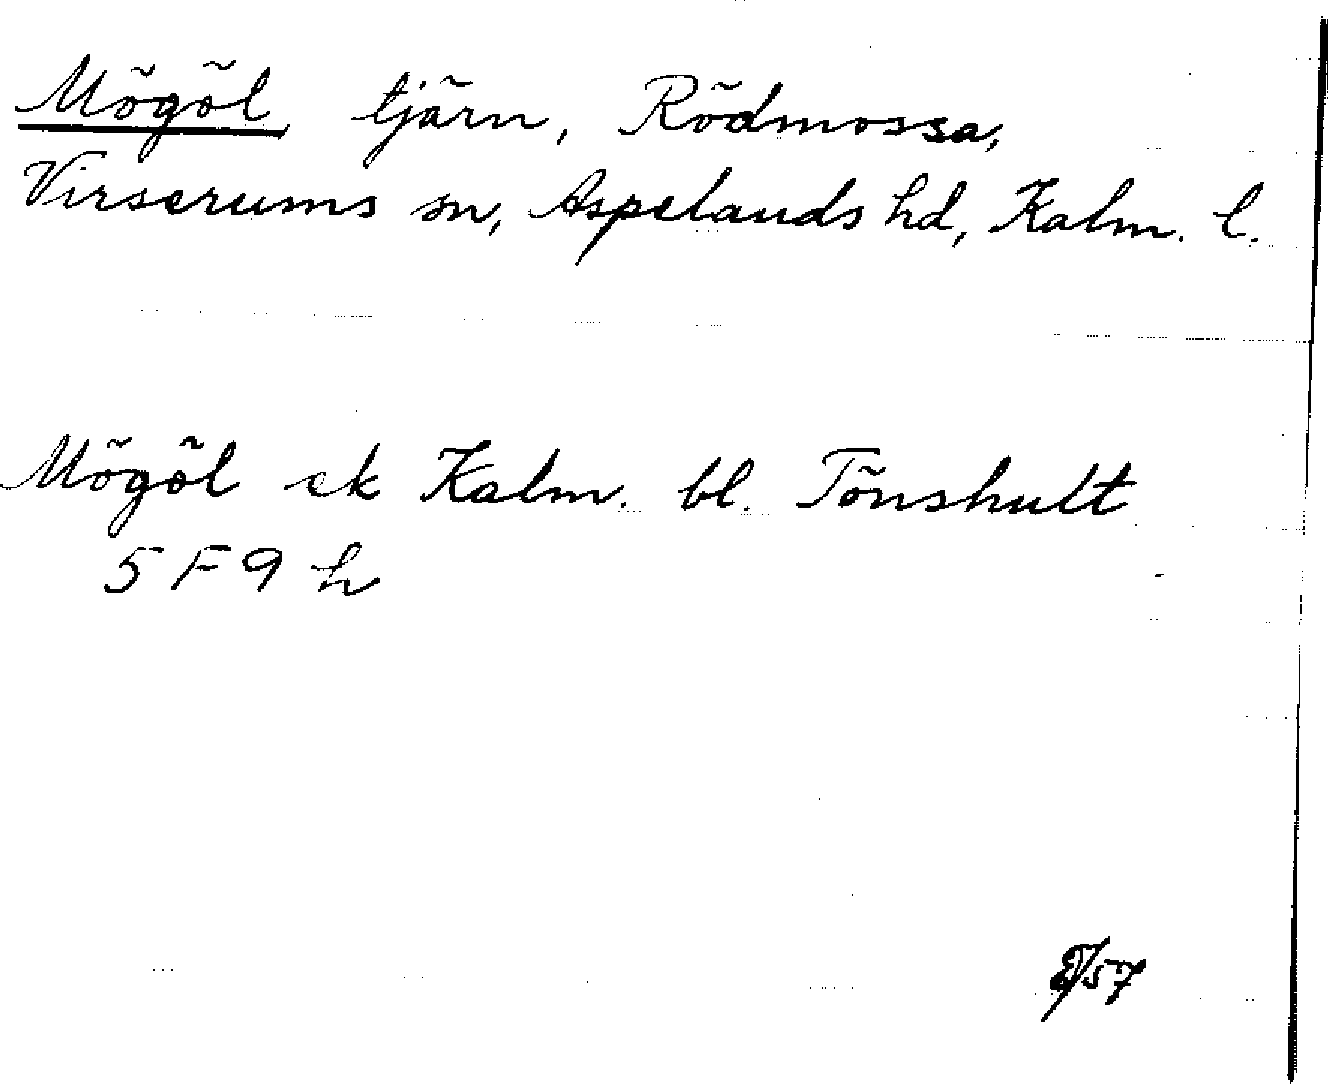 Mögöl tjärn, Rödmossa,
Virserums sn, Aspelands hd, Kalm. l.
Mögöl ek Kalm. bl. Tönshult
5F9h